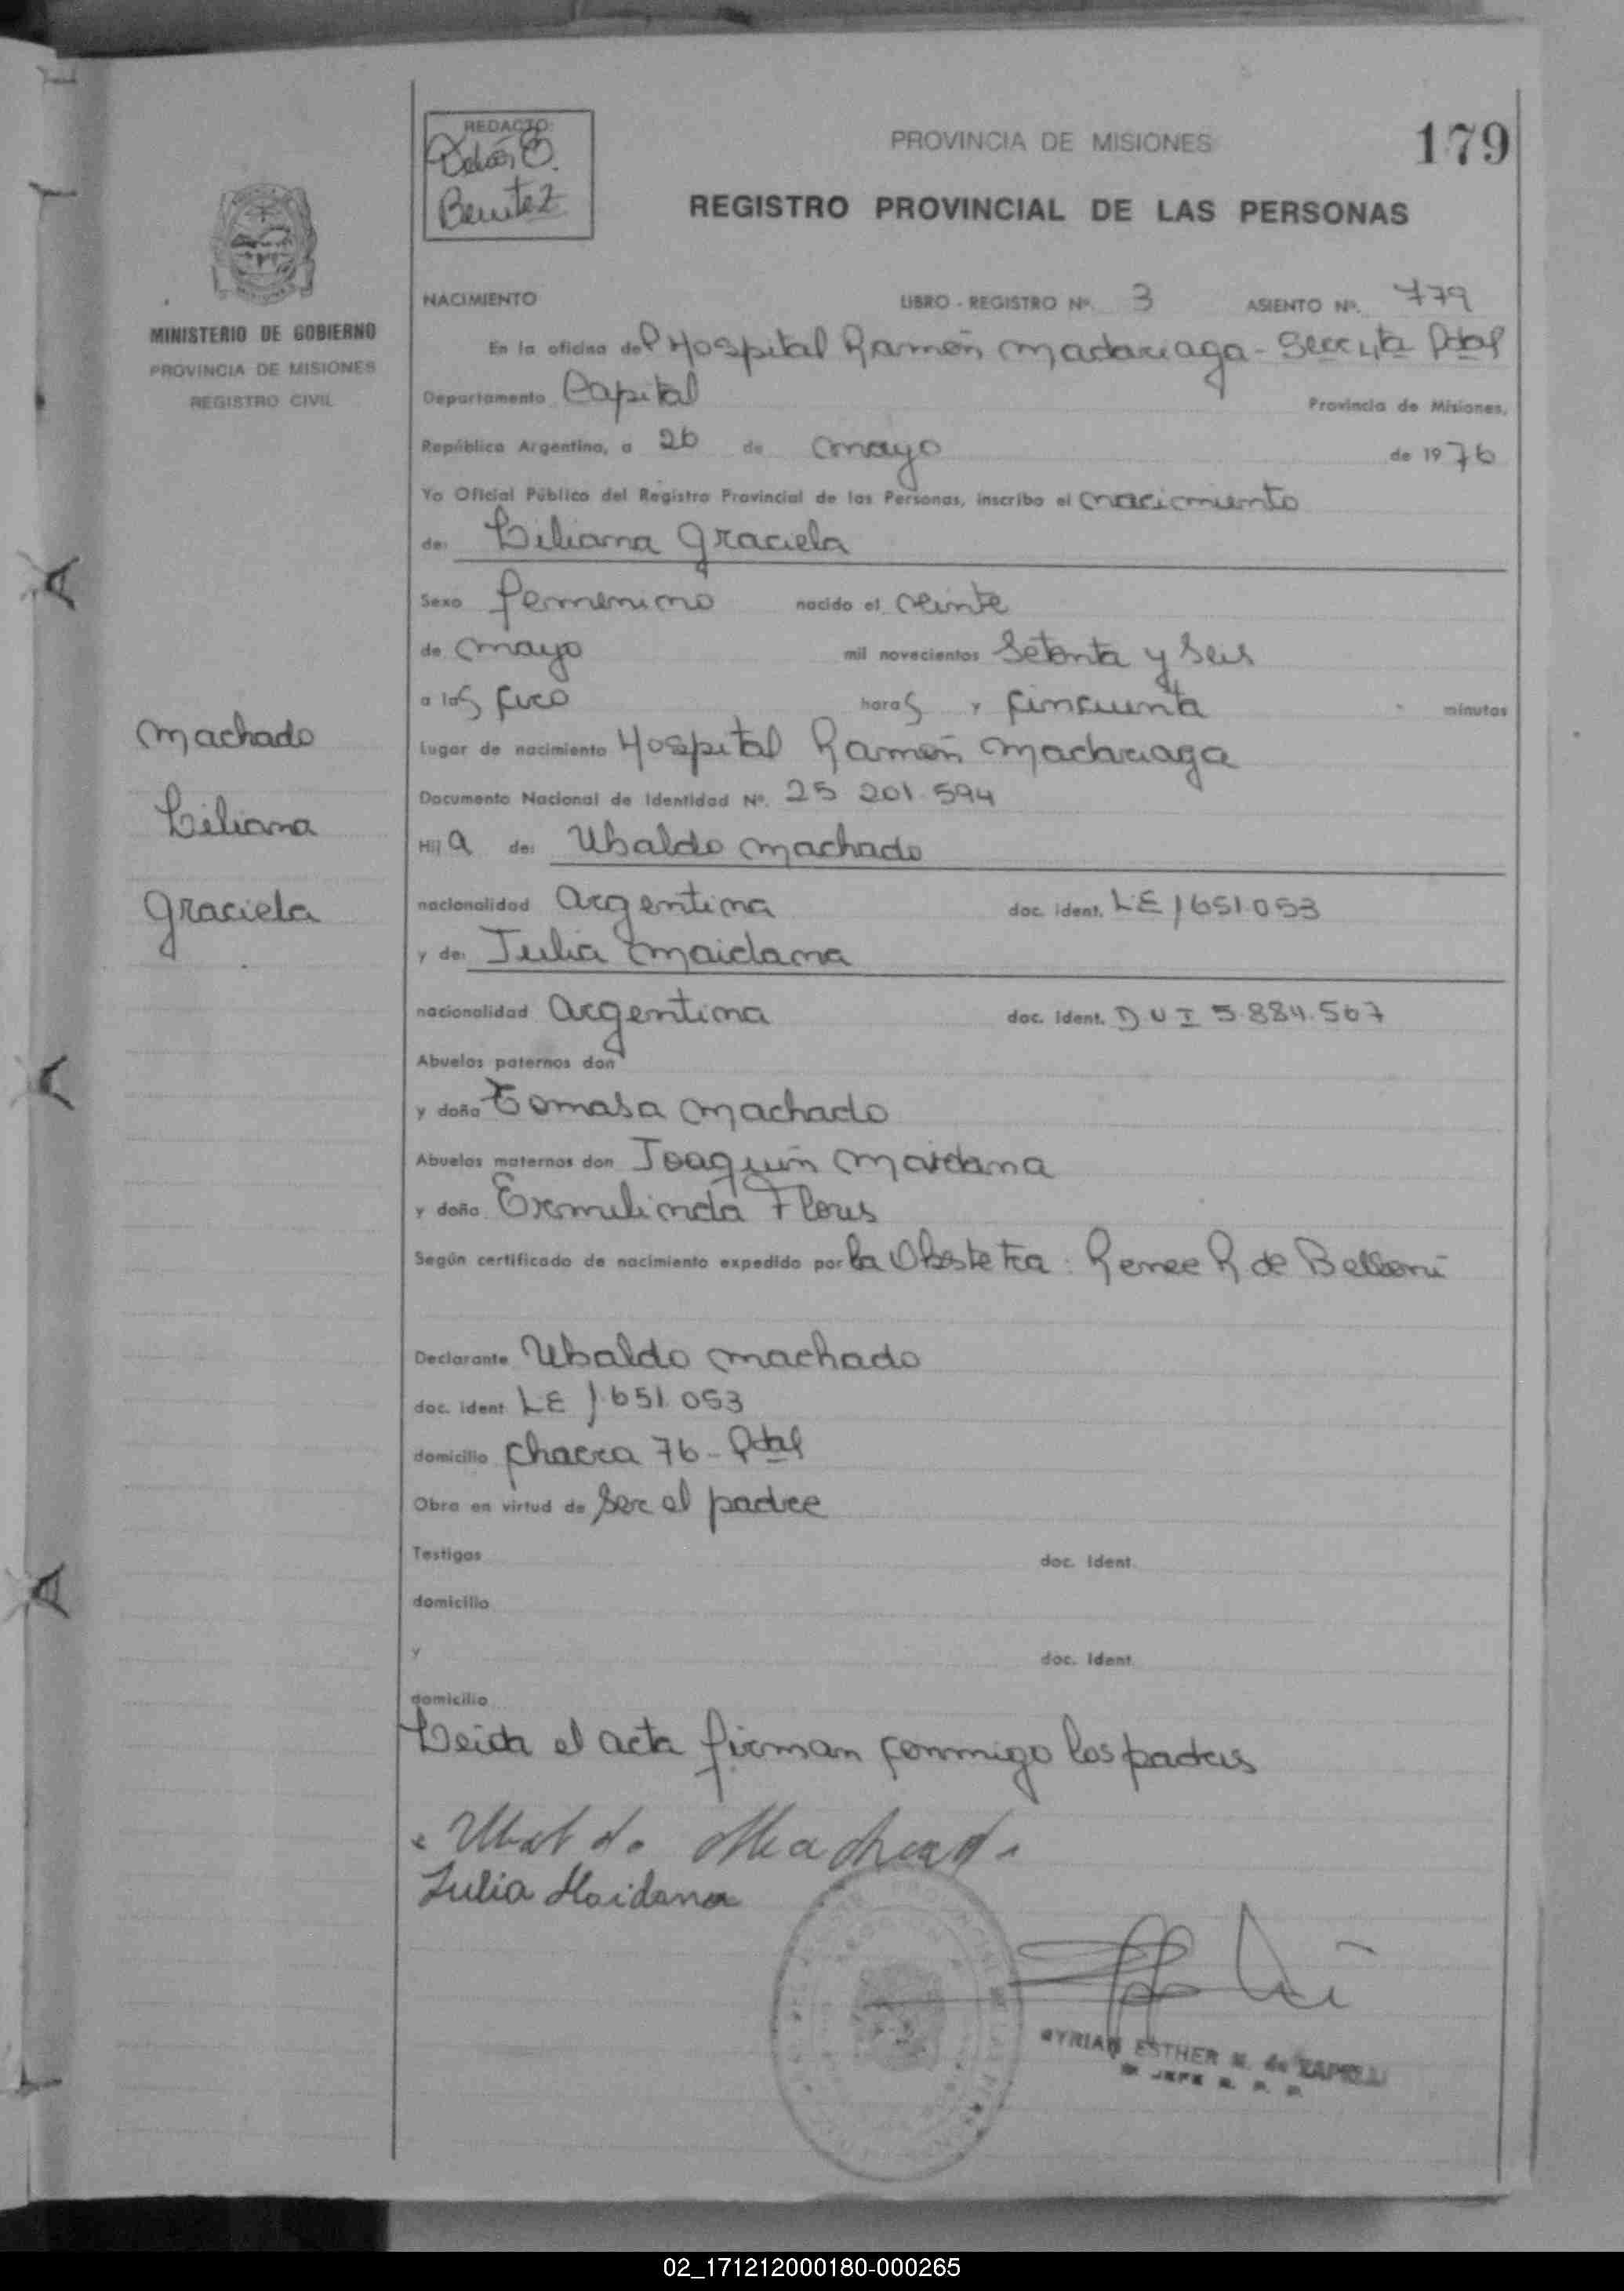 REDACTO:
Benitez
PROVINCIA DE MISIONES
179
REGISTRO PROVINCIAL DE LAS PERSONAS
MINISTERIO DE GOBIERNO
PROVINCIA DE MISIONES
REGISTRO CIVIL
NACIMIENTO LIBRO - REGISTRO Nº. 3 ASIENTO Nº. 779
En la oficina del Hospital Ramón Madariaga - Secc 4ta Pdas
Departamento Capital Provincia de Misiones,
República Argentina, a 26 de mayo de 1976
Yo Oficial Público del Registro Provincial de las Personas, inscribo el nacimiento
de: Liliana Graciela
Sexo femenino nacido el veinte
de mayo mil novecientos setenta y seis
a las cero horas y cincuenta minutos
Lugar de nacimiento Hospital Ramón Madariaga
Documento Nacional de Identidad Nº. 25 201.594
Hija de: Ubaldo Machado
nacionalidad argentina doc. ident. LE 1651.053
y de: Julia Maidana
nacionalidad argentina doc. ident. D U I 5.884.567
Abuelos paternos don
y doña Tomasa Machado
Abuelos maternos don Joaquín Maidana
y doña Ermelinda Flores
Según certificado de nacimiento expedido por la Obstetra: Renee R de Belloni
Declarante Ubaldo Machado
doc. ident LE 1.651.053
domicilio Chacra 76 - Pdas
Obra en virtud de ser el padre
Testigos doc. ident.
domicilio
y doc. ident.
domicilio
Leida el acta firman conmigo los padres
Ubaldo Machado
Julia Maidana
Machado
Liliana
Graciela
ESTHER
JEFE R. P. P.
02_171212000180-000265